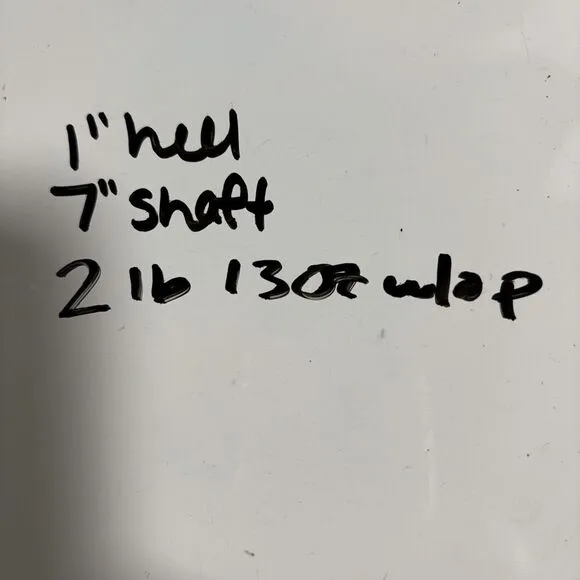 1" heel
7" shaft
2 lb 13oz